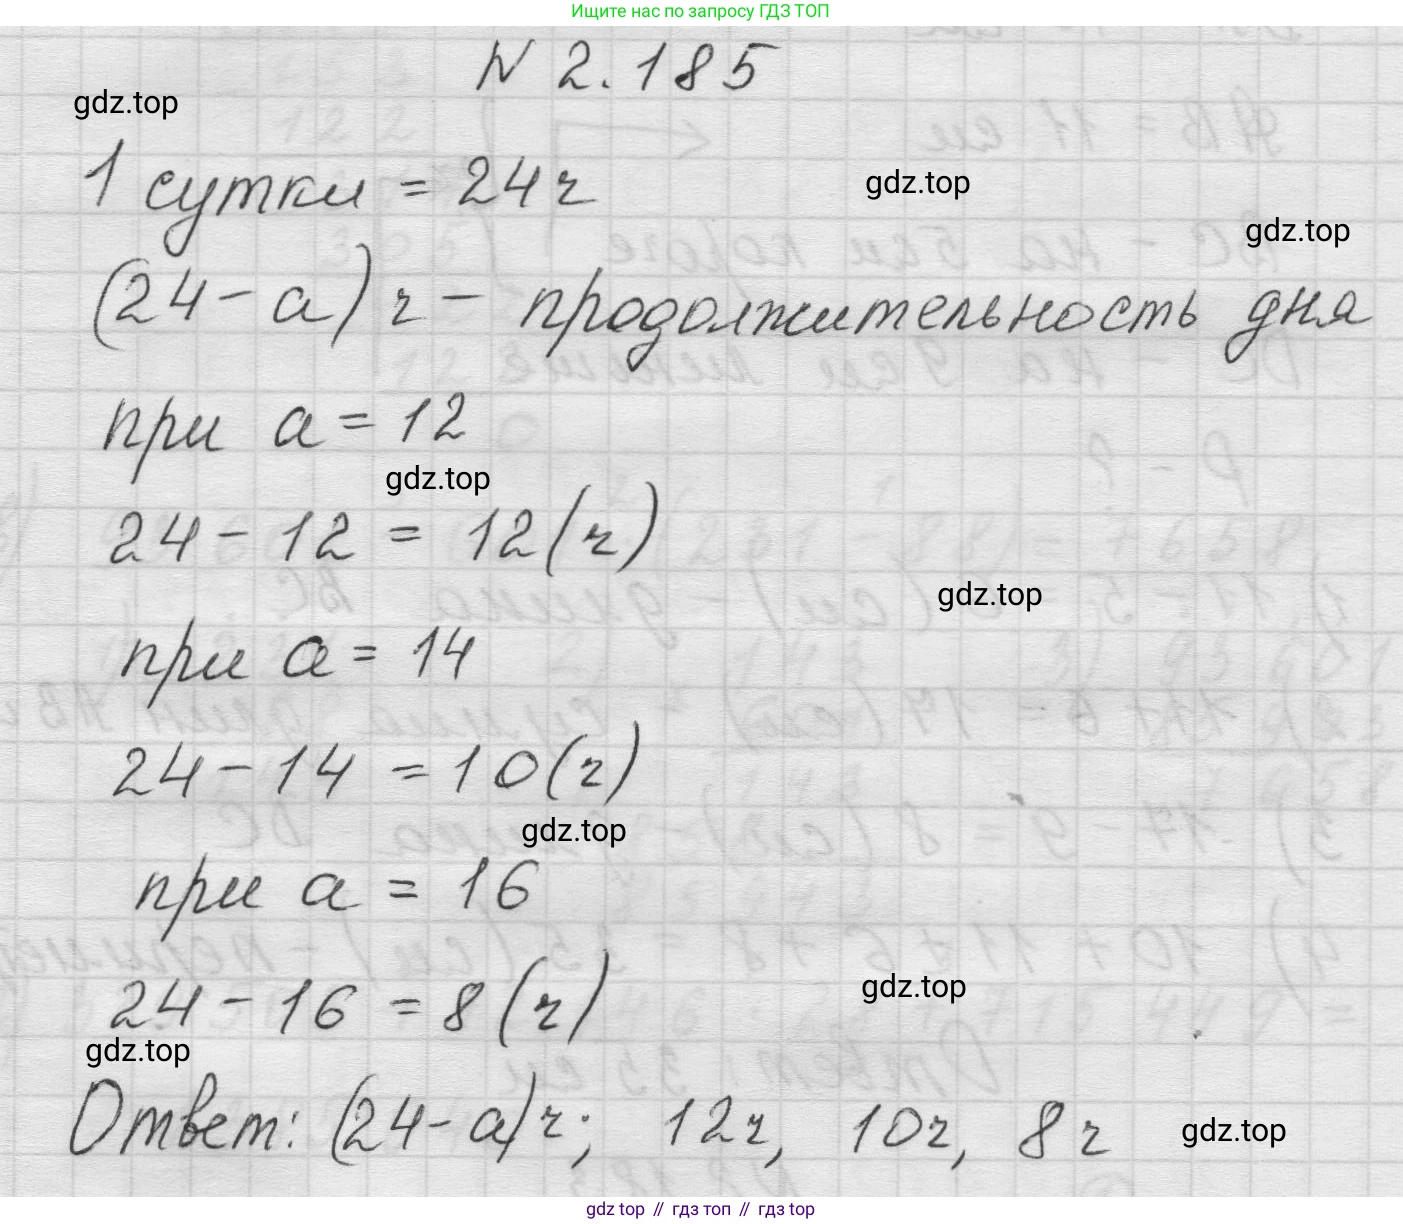 Ищите нас по запросу ГДЗ ТОП
N 2.185
gdz.top
1 сутки = 24 ч
gdz.top
gdz.top
(24 - a) ч - продолжительность дня
при a = 12
gdz.top
24 - 12 = 12 (ч)
gdz.top
при a = 14
24 - 14 = 10 (ч)
gdz.top
при a = 16
24 - 16 = 8 (ч)
gdz.top
gdz.top
Ответ: (24 - a) ч; 12 ч, 10 ч, 8 ч
gdz.top
gdz top // гдз топ // гдз top